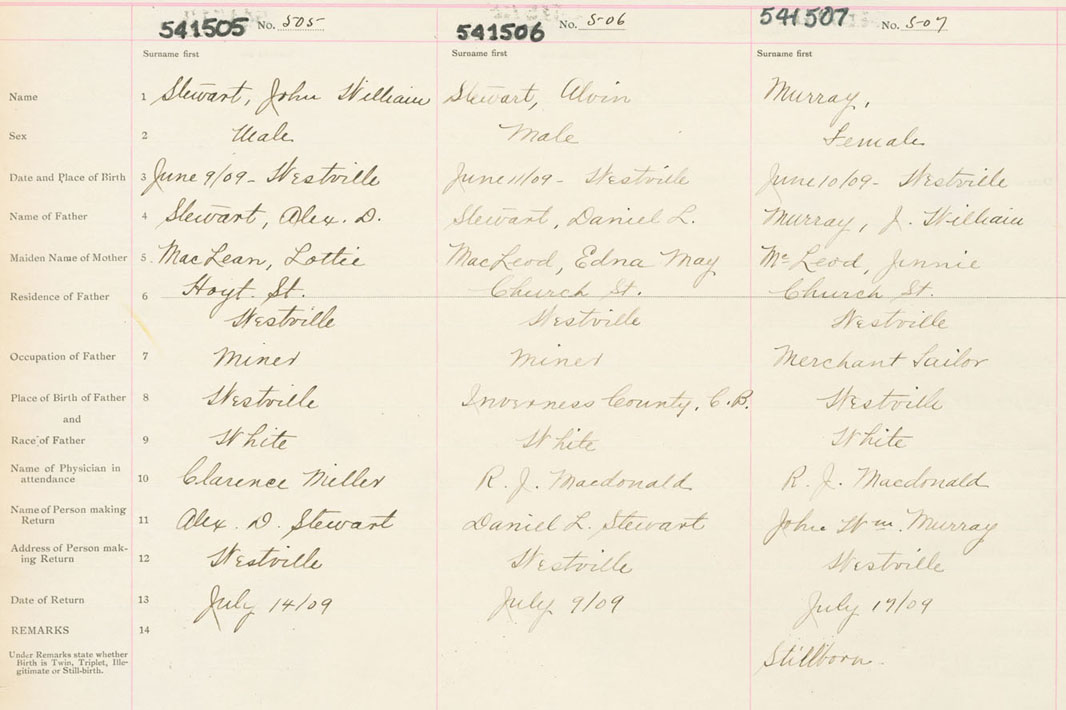 541505 No. 505 541506 No. 506 541507 No. 507
Surname first Surname first Surname first
Name 1 Stewart, John William Stewart, Alvin Murray,
Sex 2 Male Male Female
Date and Place of Birth 3 June 9/09 - Westville June 11/09 - Westville June 10/09 - Westville
Name of Father 4 Stewart, Alex. D. Stewart, Daniel L. Murray, J. William
Maiden Name of Mother 5 MacLean, Lottie MacLeod, Edna May McLeod, Jennie
Residence of Father 6 Hoyt St. Church St. Church St.
Westville Westville Westville
Occupation of Father 7 Miner Miner Merchant Tailor
Place of Birth of Father 8 Westville Inverness County, C.B. Westville
and
Race of Father 9 White White White
Name of Physician in
attendance 10 Clarence Miller R. J. Macdonald R. J. Macdonald
Name of Person making
Return 11 Alex. D. Stewart Daniel L. Stewart John Wm. Murray
Address of Person mak-
ing Return 12 Westville Westville Westville
Date of Return 13 July 14/09 July 9/09 July 17/09
REMARKS 14
Under Remarks state whether
Birth is Twin, Triplet, Ille-
gitimate or Still-birth. Stillborn.